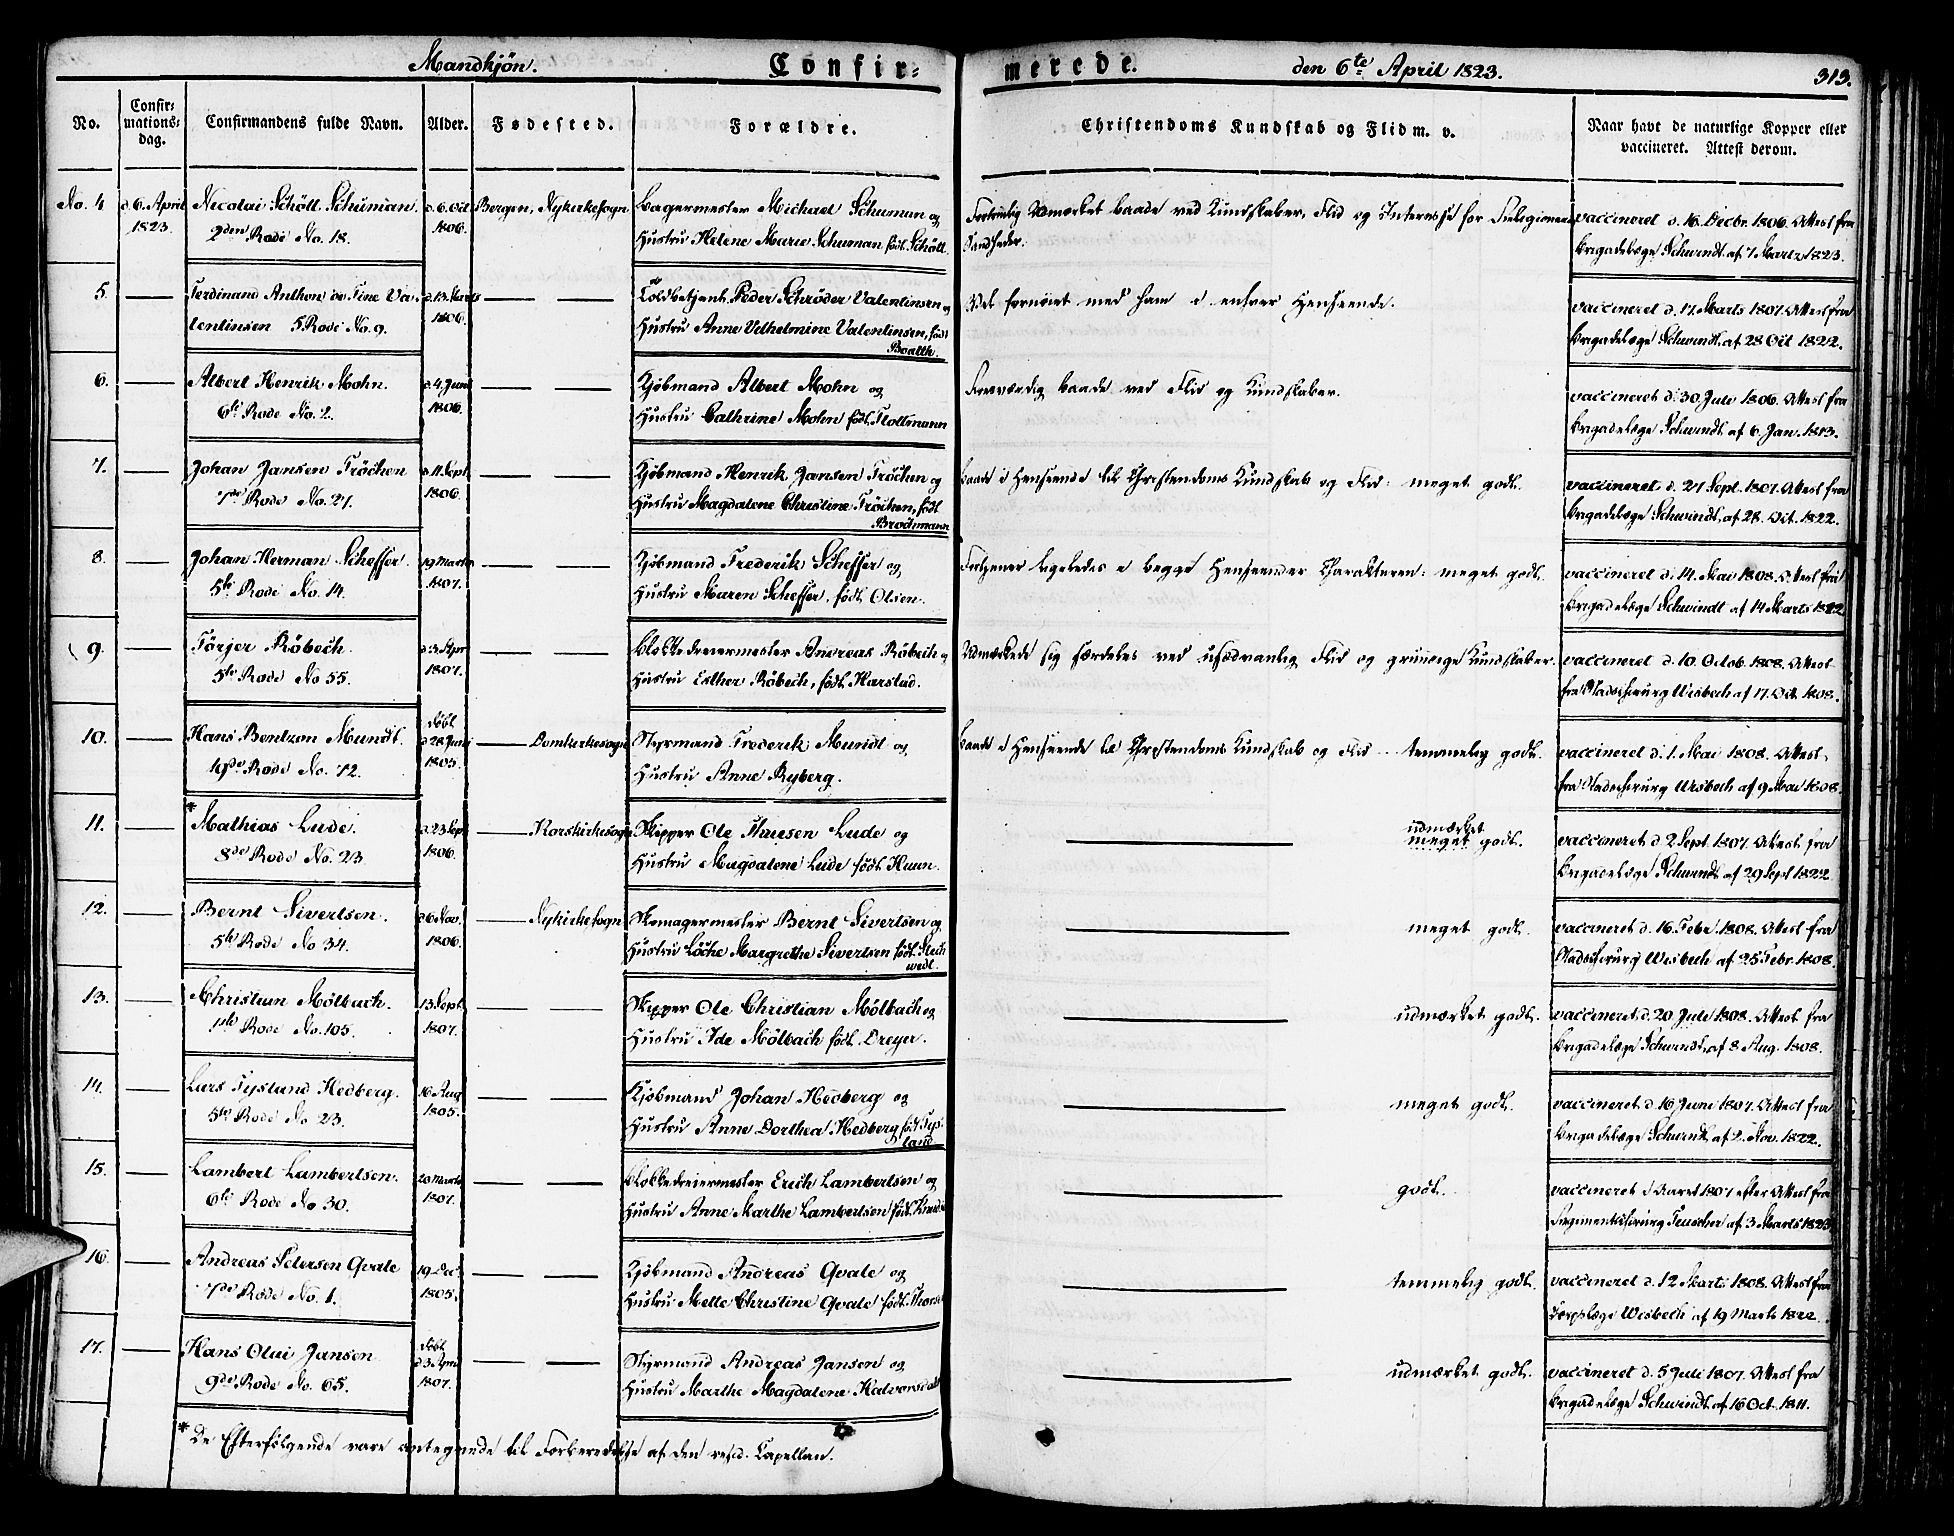 Mandkjön. Confir= merede. den 6te April 1823. 313.
No. Confir=mations=dag. Confirmandens fulde Navn. Alder. Fødested. Forældre. Christendoms Kundskab og Flid m. v. Naar havt de naturlige Kopper eller vaccineret. Attest derom.
No. 4 d. 6. April Nicolai Schött Schuman. d. 6. Oct Bergen, Nykirkesogn Bagermester Michael Schuman og Fortrinlig Udmærket baade ved Kundskaber, Flid og Interesse for Religionens vaccineret d. 16. Decbr. 1806. Attest fra
1823. 2den Rode No. 18. 1806. Hustru Helene Marie Schuman født Schött. Sandheder. Brigadelæge Schwindt af 7 Marts 1823.
5. Ferdinand Anthon de Fine Va- d. 13. Marts Toldbetjent Peder Schrøder Valentinsen og Vel fornöiet med ham i enhver Henseende. vaccineret d. 17. Marts 1807. Attest fra
lentinsen 5 Rode No. 9. 1806. Hustru Anne Vilhelmine Valentinsen, født Brigadelæge Schwindt af 28 Oct 1822.
Boalth.
6. Albert Henrik Mohn. d. 4. Juni Kjöbmand Albert Mohn og Prisværdig baade ved Flid og Kundskaber. vaccineret d. 30 Juli 1806. Attest fra
6te Rode No. 2. 1806. Hustru Cathrine Mohn født Stottmann Brigadelæge Schwindt af 6 Jan. 1813.
7. Johan Jansen Fröchen d. 11. Sept. Kjöbmand Henrik Jansen Fröchen og Baade i Henseende til Christendoms Kundskab og Flid: meget godt. vaccineret d. 21 Sept. 1807. Attest fra
7de Rode No. 21. 1806. Hustru Magdalene Christine Fröchen, født Brigadelæge Schwindt, af 28. Oct. 1822.
Brochmann
8. Johan Herman Scheffer. 19 Marts Kjöbmand Frederik Scheffer og Fortjener ligeledes i begge Henseender Charakteren: meget godt. vaccineret d. 14. Mai 1808. Attest fra
5te Rode No. 14. 1807. Hustru Maren Scheffer, født Olsen. Brigadelæge Schwindt af 14 Marts 1822
9. Törjer Röbech. d. 3. Apr Blokkedreiermester Andreas Röbech og Udmærkede sig særdeles ved usædvanlig Flid og grundige Kundskaber. vaccineret d. 10. Octob. 1808. Attest
5te Rode No 55. 1807. Hustru Esther Röbech, født Harstad. fra Stadschirurg Wisbech af 17. Oct. 1808.
10. Hans Bentzon Mundt. döbt d 28 Juni 1805. Domkirkesogn Styrmand Frederik Mundt og Baade i Henseende til Christendoms Kundskab og Flid temmelig godt. vaccineret d. 1. Mai 1808. Attest
10de Rode No. 72. Hustru Anne Ryberg. fra Stadschirurg Wisbech af 9 Mai 1808.
11. * Mathias Lude. d 23 Sept Korskirkesogn Skipper Ole Hansen Lude og udmærket meget godt. vaccineret d 2 Sept. 1807. Attest fra
8de Rode No. 23 1806. Hustru Magdalene Lude født Huun. Brigadelæge Schwindt af 29 Sept 1822
12. Bernt Sivertsen. Nov. Nykirkesogn Skomagermester Bernt Sivertsen og meget godt. vaccineret d. 16 Febr. 1808. Attest fra
5te Rode No 34. 1806. Hustru Margrethe Sivertsen født Stadschirurg Wisbech af 25 Febr. 1808.
13. Christian Mölbach. 13 Sept. Skipper Ole Christian Mölbach og udmærket godt. vaccineret d. 20 Juli 1808. Attest fra
Rode No. 105. 1807. Hustru Ide Mölbach født Dreyer. Brigadelæge Schwindt, af 8 Aug. 1808.
14. Lars Tystand Hedberg. 16 Aug Kjöbmand Johan Hedberg og meget godt. vaccineret d. 16 Juni 1807. Attest fra
5te Rode No 23. 1805. Hustru Anne Dorthea Hedberg født Tys- Brigadelæge Schwindt, af 2. Nov. 1822.
land
15. Lambert Lambertsen. 20 Marts Blokkedreiermester Erich Lambertsen og godt. vaccineret i Aaret 1807 efter Attest fra
6te Rode No 30. 1807. Hustru Anne Marthe Lambertsen født Regimentschirurg af 3 Marts 1823
16. Andreas Petersen Qvale 19 Dec. Kjöbmand Andreas Qvale og temmelig godt. vaccineret d. 12 Marts 1808. Attest fra
7de Rode No. 1. 1805. Hustru Mette Christine Qvale født Corpslæge Wisbech af 19 Marts 1822
17. Hans Olai Jansen döbt d 3 Apr Styrmand Andreas Jansen og udmærket godt. vaccineret d. 5 Juli 1807. Attest fra
9de Rode No. 65. 1807. Hustru Marthe Magdalene Brigadelæge Schwindt af 16 Oct. 1811.
* De Efterfölgende vare antegnede til Forberedelse af den resid. Capellan.